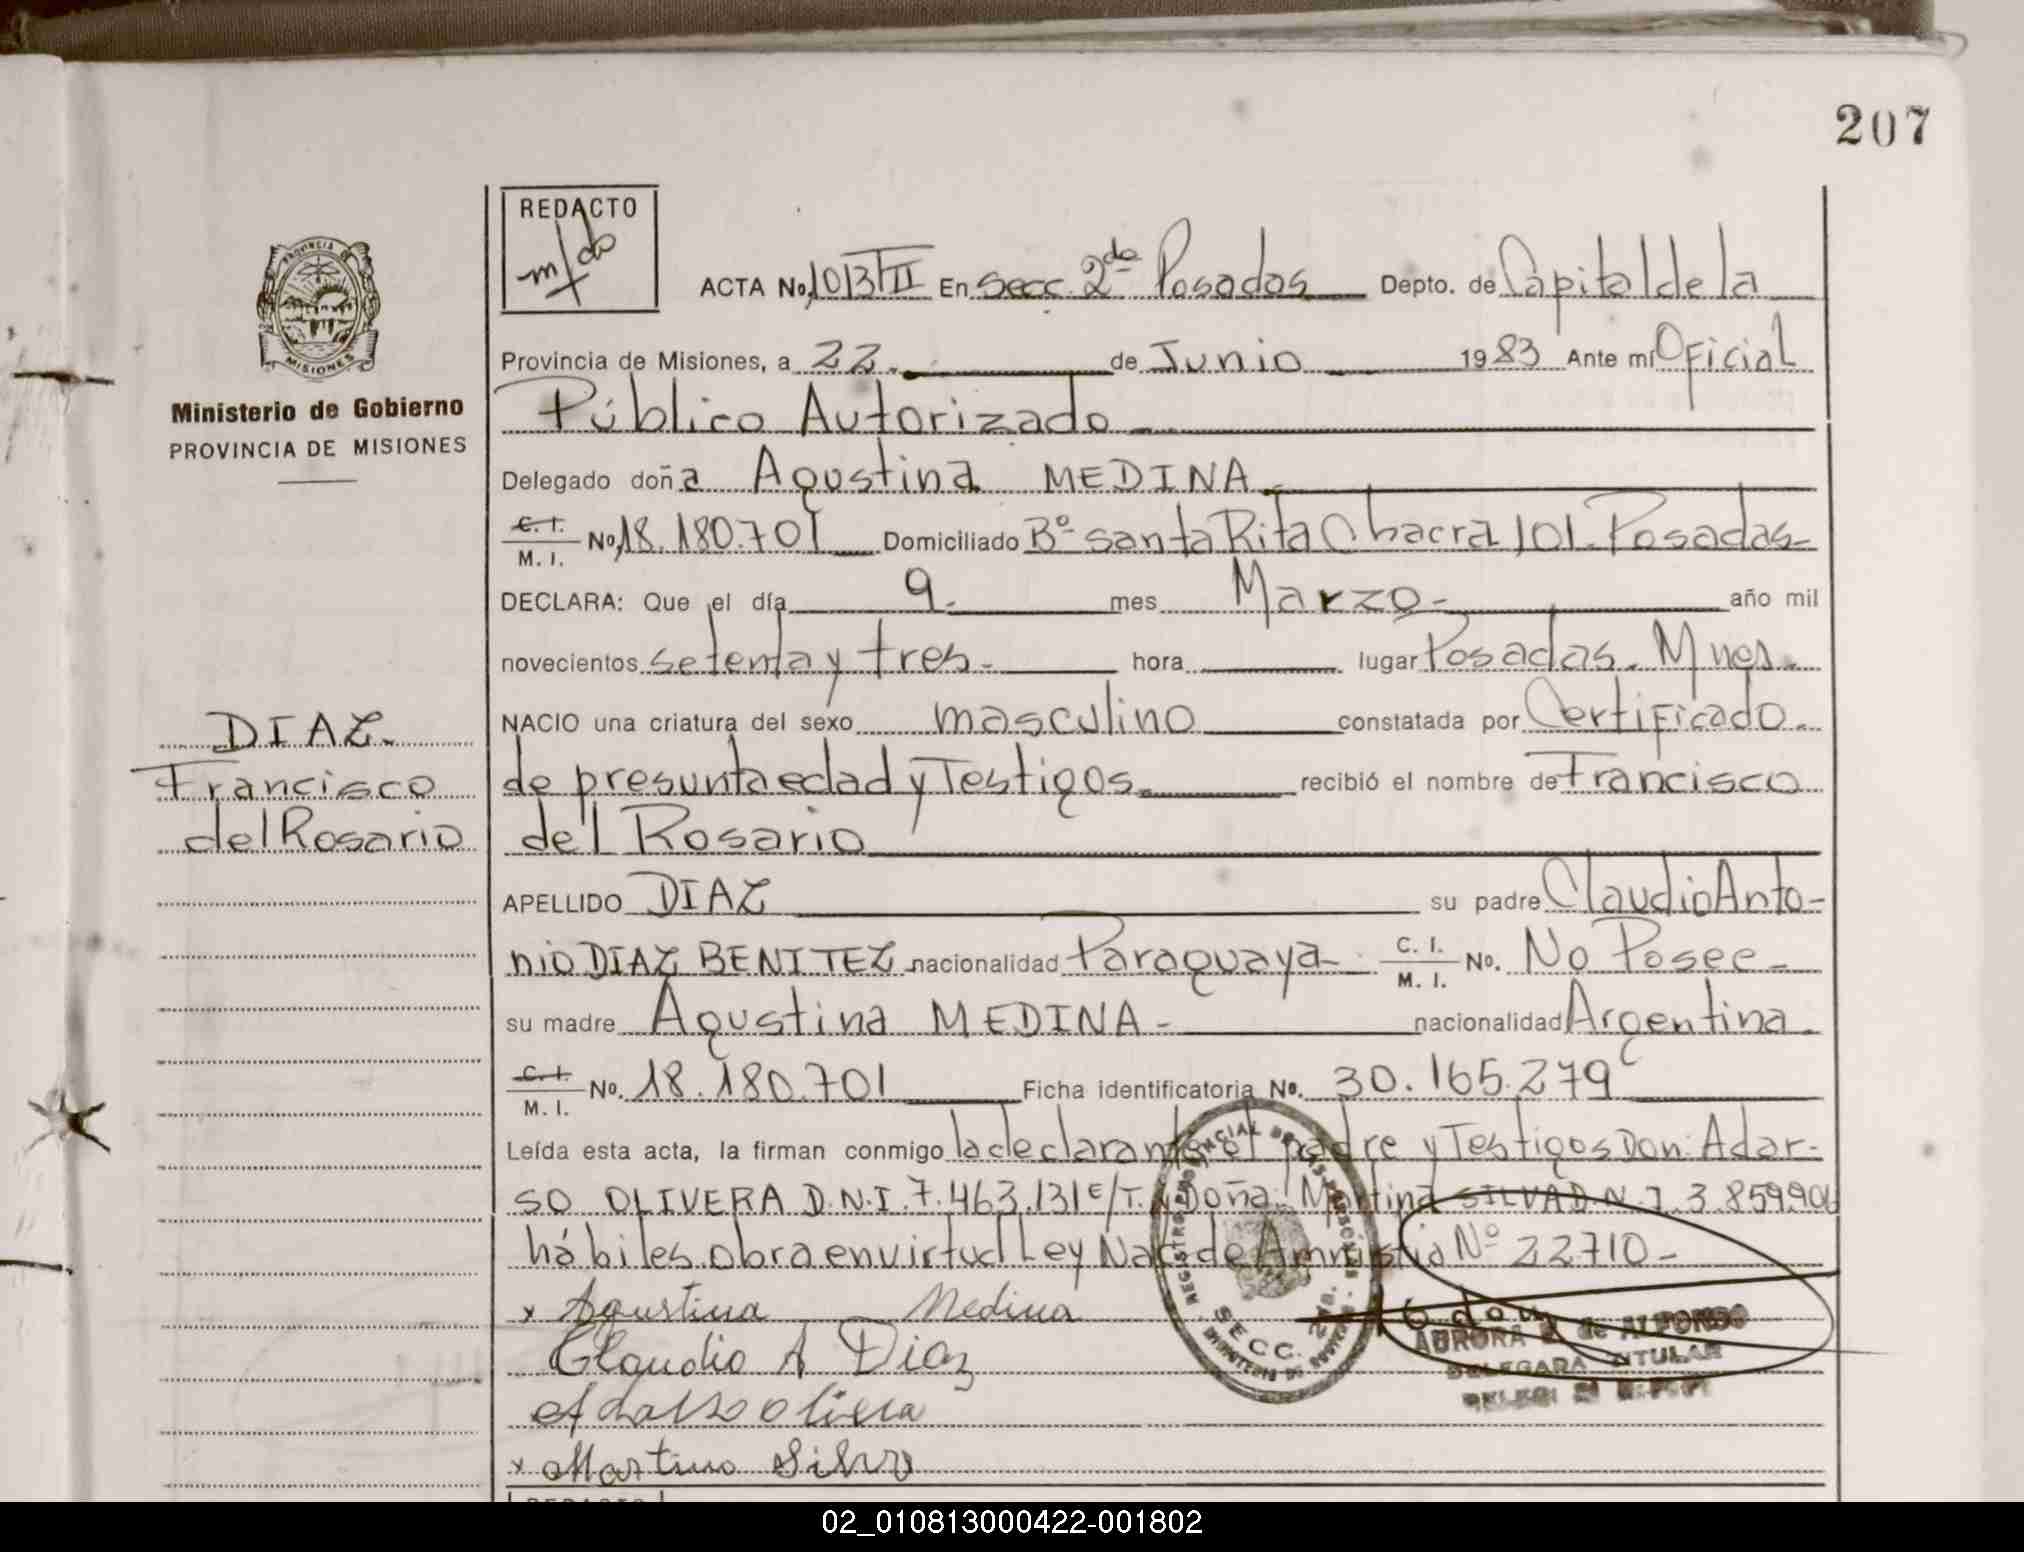 207
REDACTO
ACTA No. 1013 TII En Secc. 2da Posadas Depto. de Capital de la
PROVINCIA
MISIONES
Provincia de Misiones, a 22. de Junio 1983 Ante mí Oficial
Ministerio de Gobierno
PROVINCIA DE MISIONES
Público Autorizado
Delegado doña Agustina MEDINA
C. I. M. I. No. 18.180.701 Domiciliado Bº Santa Rita Chacra 101. Posadas-
DECLARA: Que el día 9. mes Marzo- año mil
novecientos setenta y tres- hora lugar Posadas. Mnes.
NACIO una criatura del sexo masculino constatada por Certificado.
de presunta edad y Testigos. recibió el nombre de Francisco
del Rosario
DIAZ.
Francisco
del Rosario
APELLIDO DIAZ su padre Claudio Anto-
nio DIAZ BENITEZ nacionalidad Paraguaya- C. I. M. I. No. No Posee-
su madre Agustina MEDINA- nacionalidad Argentina.
C. I. M. I. No. 18.180.701 Ficha identificatoria No. 30.165.279
Leída esta acta, la firman conmigo la declarante el padre y Testigos Don: Adar-
so OLIVERA D.N.I. 7.463.131 E/T. y Doña: Martina SILVA D.N.I. 3.859.906
hábiles. obra en virtud Ley Nac. de Amnistia Nº 22710-
x Agustina Medina
Claudio A Diaz
Adarso olivera
x Martina Silva
SECC. 2da.
AURORA de ALFONSO
DELEGADA TITULAR
REDACTO
02_010813000422-001802